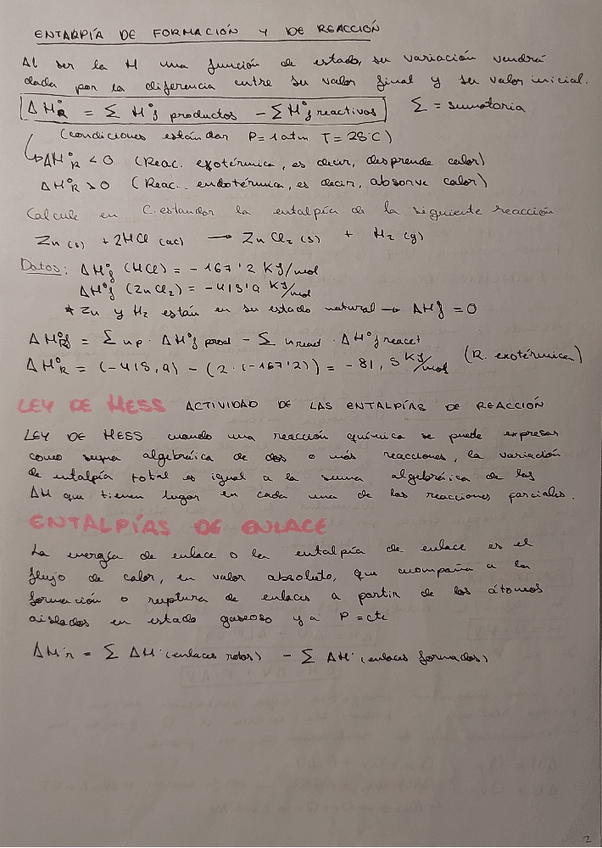 ENTARPÍA DE FORMACIÓN Y DE REACCIÓN
Al ser la H una función de estado, su variación vendrá
dada por la diferencia entre su valor final y su valor inicial.
ΔH°R = Σ H°f productos - Σ H°f reactivos   Σ = sumatoria
(condiciones estándar P=1atm T=25°C)
↳ ΔH°R < 0 (Reac. exotérmica, es decir, desprende calor)
ΔH°R > 0 (Reac. endotérmica, es decir, absorve calor)
Calcule en C. estandar la entalpía de la siguiente reacción
Zn (s) + 2HCl (ac) → ZnCl₂ (s) + H₂ (g)
Datos: ΔH°f (HCl) = -167'2 KJ/mol
ΔH°f (ZnCl₂) = -415'9 KJ/mol
* Zn y H₂ están en su estado natural → ΔHf = 0
ΔH°R = Σ np · ΔH°f prod - Σ nreact · ΔH°f react
ΔH°R = (-415,9) - (2·(-167'2)) = -81,5 KJ/mol (R. exotérmica)
LEY DE HESS ACTIVIDAD DE LAS ENTALPÍAS DE REACCIÓN
LEY DE HESS cuando una reacción química se puede expresar
como suma algebráica de dos o más reacciones, la variación
de entalpía total es igual a la suma algebráica de las
ΔH que tienen lugar en cada una de las reacciones parciales.
ENTALPÍAS DE ENLACE
La energía de enlace o la entalpía de enlace es el
flujo de calor, en valor absoluto, que acompaña a la
formación o ruptura de enlaces a partir de los átomos
aislados en estado gaseoso y a P = cte
ΔH°r = Σ ΔH (enlaces rotos) - Σ ΔH (enlaces formados)
2